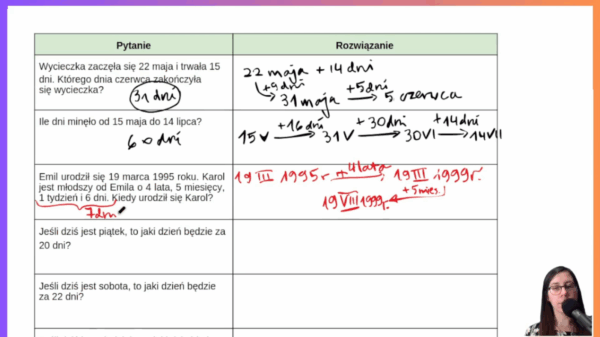 Pytanie
Rozwiązanie
Wycieczka zaczęła się 22 maja i trwała 15
dni. Którego dnia czerwca zakończyła
się wycieczka?
31 dni
22 maja + 14 dni
+9 dni
+5 dni
31 maja → 5 czerwca
Ile dni minęło od 15 maja do 14 lipca?
60 dni
+16 dni +30 dni +14 dni
15 V → 31 V → 30 VI → 14 VII
Emil urodził się 19 marca 1995 roku. Karol
jest młodszy od Emila o 4 lata, 5 miesięcy,
1 tydzień i 6 dni. Kiedy urodził się Karol?
7 dni
+4 lata
19 III 1995 r. → 19 III 1999 r.
+5 mies.
19 VIII 1999 r.
Jeśli dziś jest piątek, to jaki dzień będzie za
20 dni?
Jeśli dziś jest sobota, to jaki dzień będzie
za 22 dni?